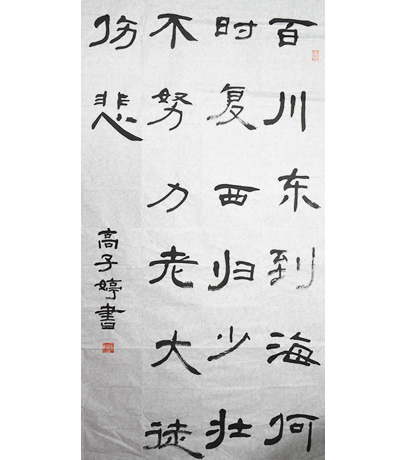 百川东到海何
时复西归少壮
不努力老大徒
伤悲
高子婷書